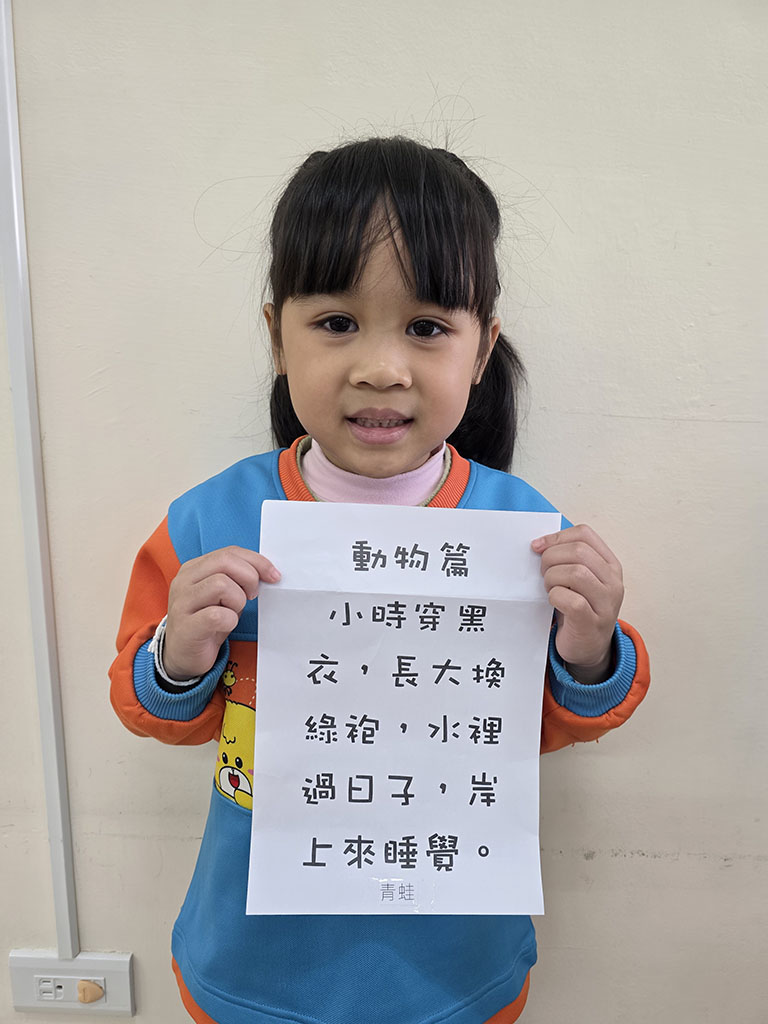 動物篇
小時穿黑
衣，長大換
綠袍，水裡
過日子，岸
上來睡覺。
青蛙